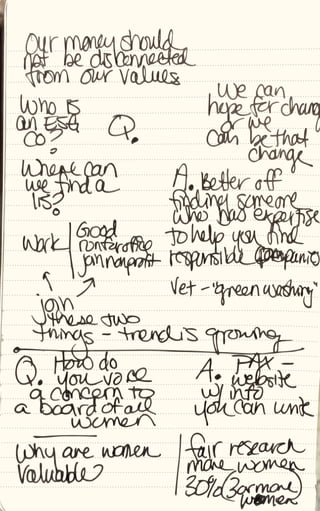 our money should
not be disconnected
from our values
Who is
an ESG
co?
Q.
Where can
we find a
list?
We can
hope for change
or we
can be that
change
A. Better off
finding someone
who has expertise
to help you find
responsible companies
Vet - "green washing"
Work
Good
for
join nonprofit
join
these two
things - trend is growing
Q. How do
you voice
a concern to
a board of all
women
A. PAX -
website
w/ info
you can write
Why are women
valuable?
fair research
more women
30% (3 or more)
women